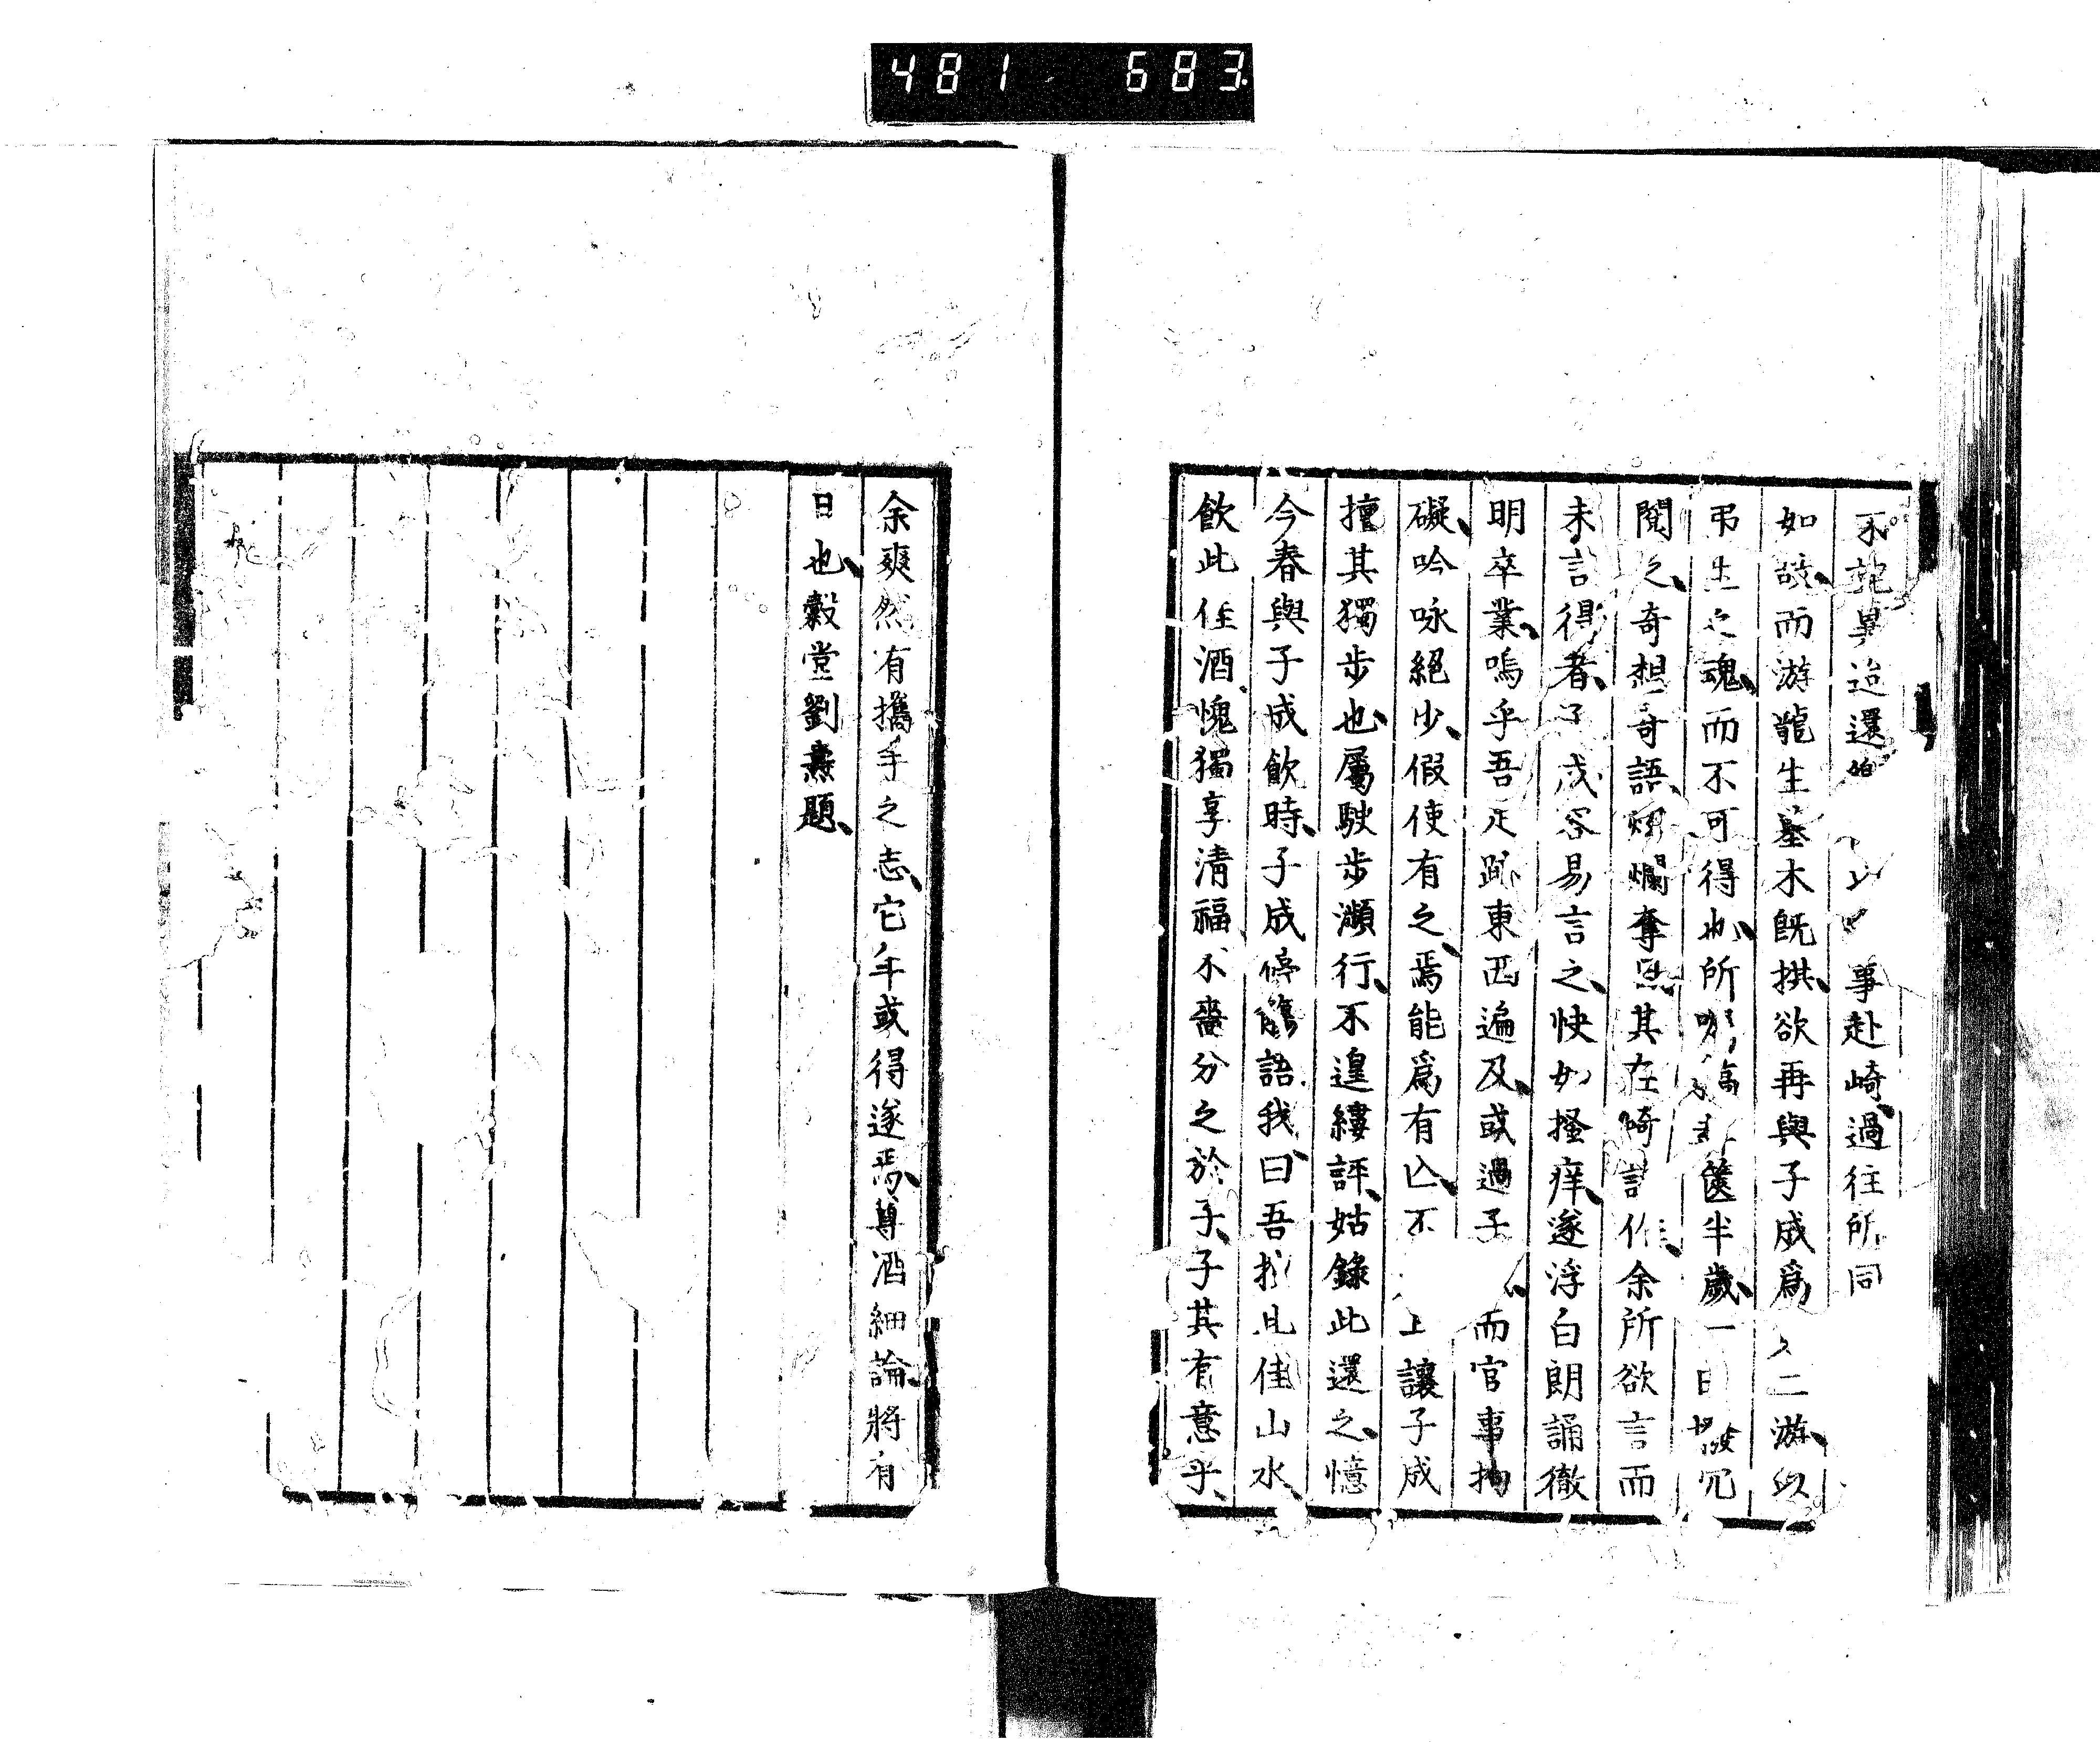 481 683
不詫異迨還 事赴崎、過往所同
如故、而游龍生墓木既拱、欲再與子成爲 二游、以
弔生之魂、而不可得也、所 篋半歲、一日撥冗
閱之、奇想奇語、爛奪 其在崎諸作、余所欲言而
未言得者、子成容易言之、快如搔痒、遂浮白朗誦徹
明卒業、嗚乎吾足跡東西遍及、或過子 而官事拘
礙、吟咏絕少、假使有之、焉能爲有亡、不 讓子成
擅其獨步也、屬駛步瀕行、不遑縷評、姑錄此還之、憶
今春與子成飲時、子成停觴語我、曰吾 此佳山水、
飲此佳酒、愧獨享清福、不嗇分之於子、子其有意乎、
余爽然有攜手之志、它年或得遂焉、尊酒細論、將有
日也、穀堂劉燾題、